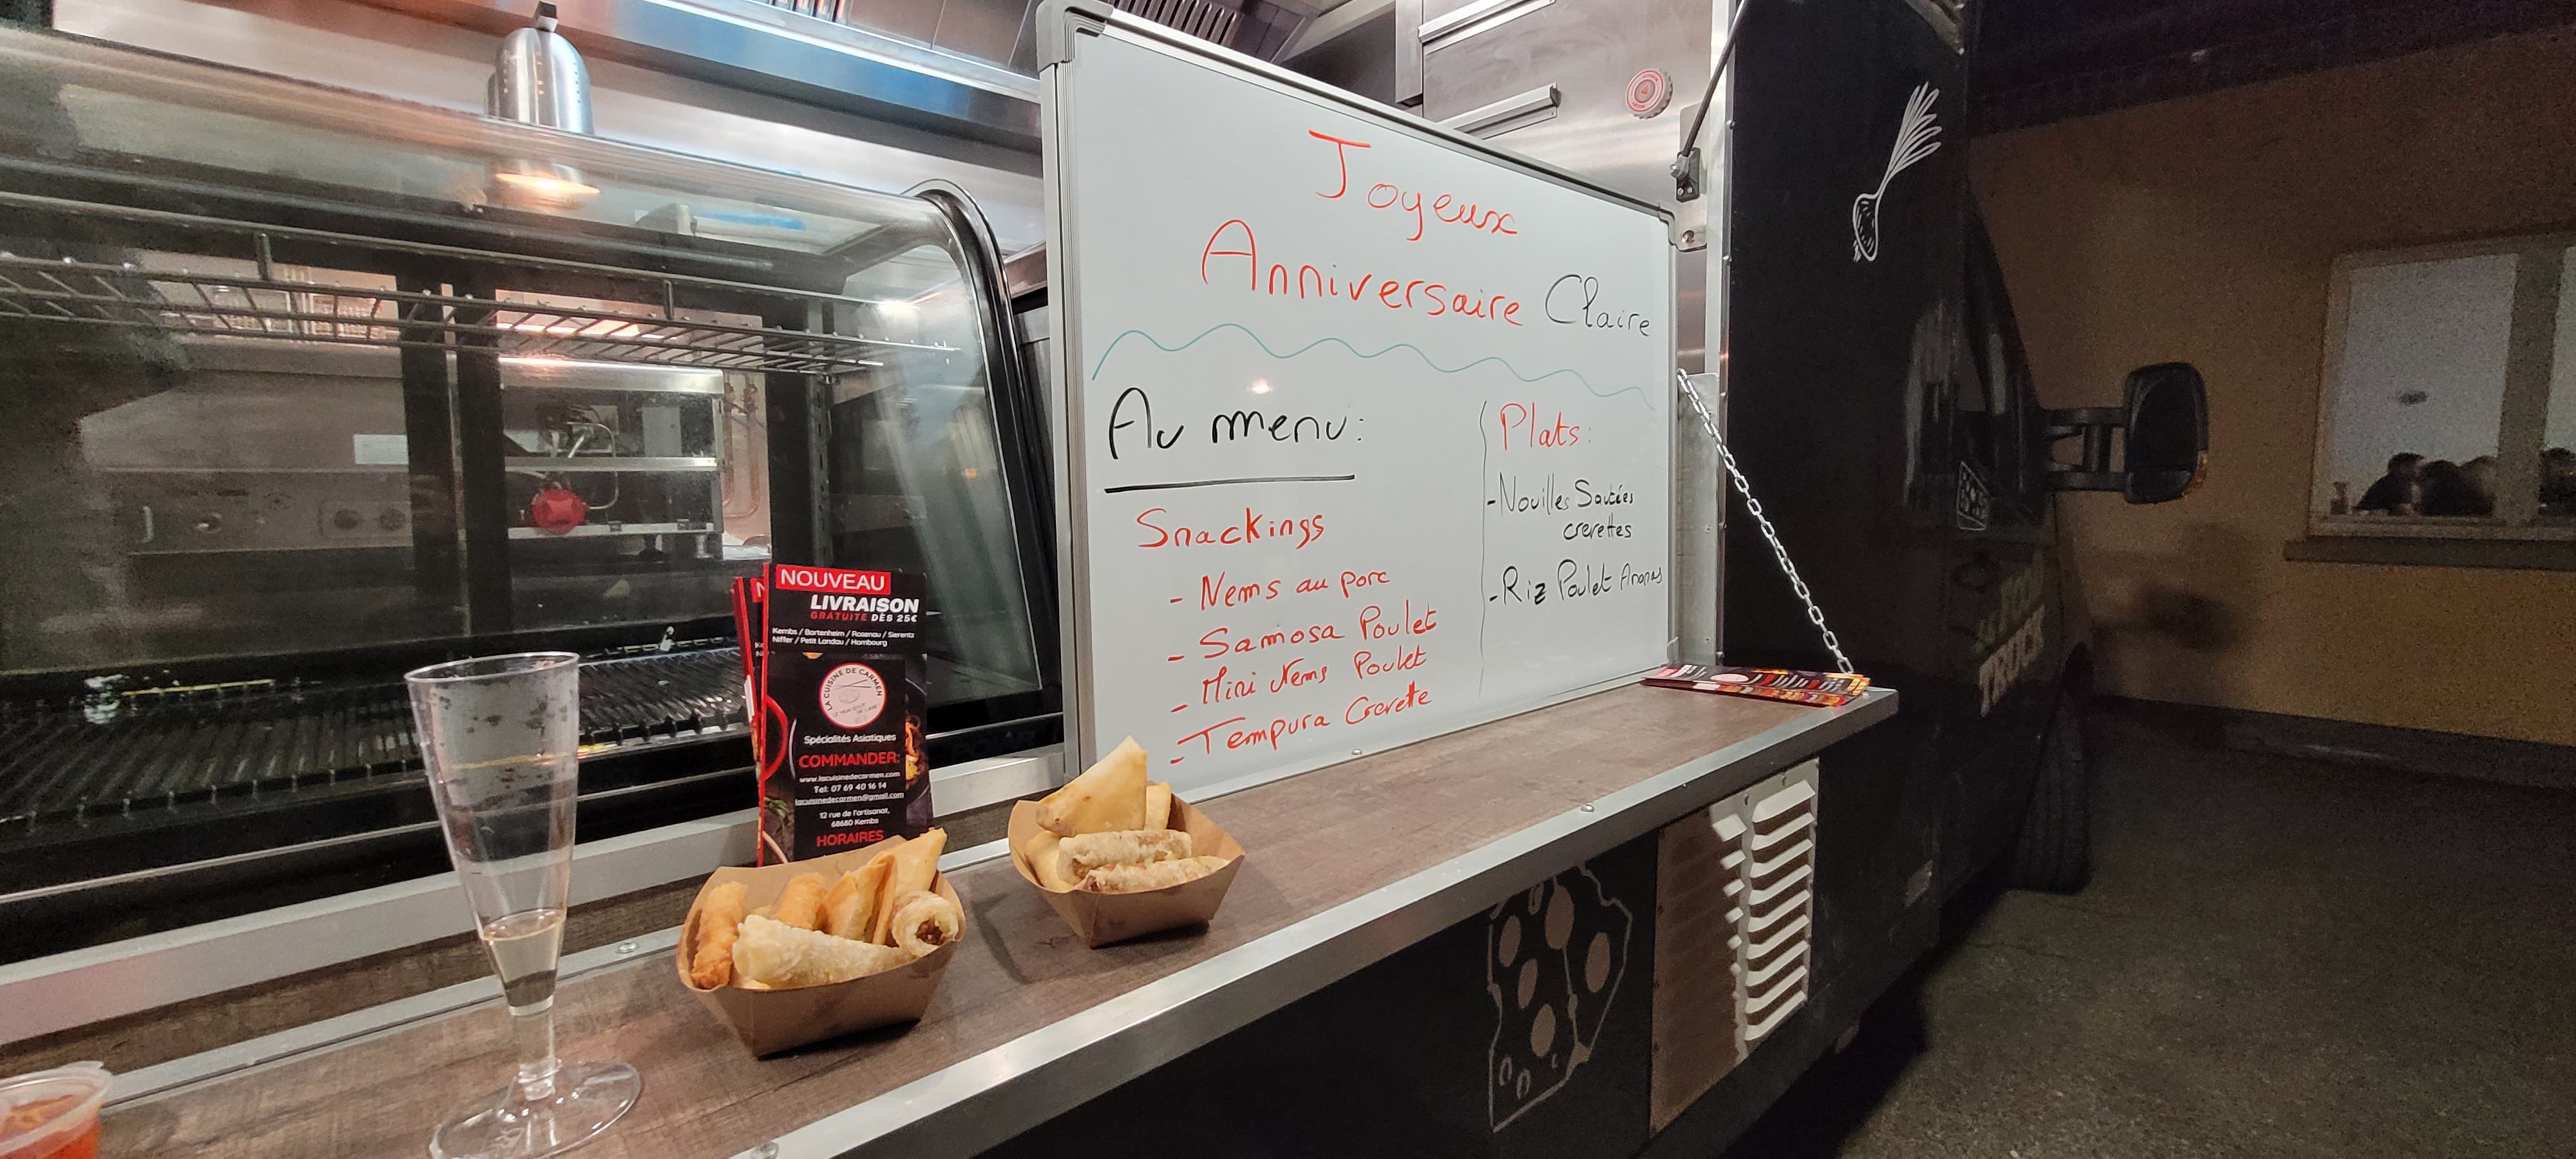 Joyeux
Anniversaire Claire
Au menu:
Snackings
- Nems au porc
- Samosa Poulet
- Mini Nems Poulet
- Tempura Crevette
Plats:
- Nouilles Sautées
crevettes
- Riz Poulet Ananas
NOUVEAU
LIVRAISON
GRATUITE DÈS 25€
Kembs / Bartenheim / Rosenau / Sierentz
Niffer / Petit Landau / Hombourg
LA CUISINE DE CARMEN
Spécialités Asiatiques
COMMANDER:
www.lacuisinedecarmen.com
Tel: 07 69 40 16 14
lacuisinedecarmen@gmail.com
12 rue de l'artisanat,
68680 Kembs
HORAIRES
TRUCK